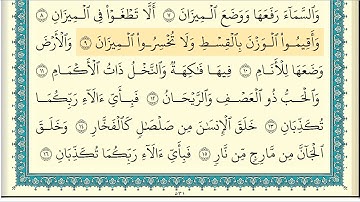 وَٱلسَّمَآءَ رَفَعَهَا وَوَضَعَ ٱلْمِيزَانَ ٧ أَلَّا تَطْغَوْا۟ فِى ٱلْمِيزَانِ ٨
وَأَقِيمُوا۟ ٱلْوَزْنَ بِٱلْقِسْطِ وَلَا تُخْسِرُوا۟ ٱلْمِيزَانَ ٩ وَٱلْأَرْضَ
وَضَعَهَا لِلْأَنَامِ ١٠ فِيهَا فَـٰكِهَةٌ وَٱلنَّخْلُ ذَاتُ ٱلْأَكْمَامِ ١١
وَٱلْحَبُّ ذُو ٱلْعَصْفِ وَٱلرَّيْحَانُ ١٢ فَبِأَىِّ ءَالَآءِ رَبِّكُمَا
تُكَذِّبَانِ ١٣ خَلَقَ ٱلْإِنسَـٰنَ مِن صَلْصَـٰلٍ كَٱلْفَخَّارِ ١٤ وَخَلَقَ
ٱلْجَآنَّ مِن مَّارِجٍ مِّن نَّارٍ ١٥ فَبِأَىِّ ءَالَآءِ رَبِّكُمَا تُكَذِّبَانِ ١٦
٥٣١